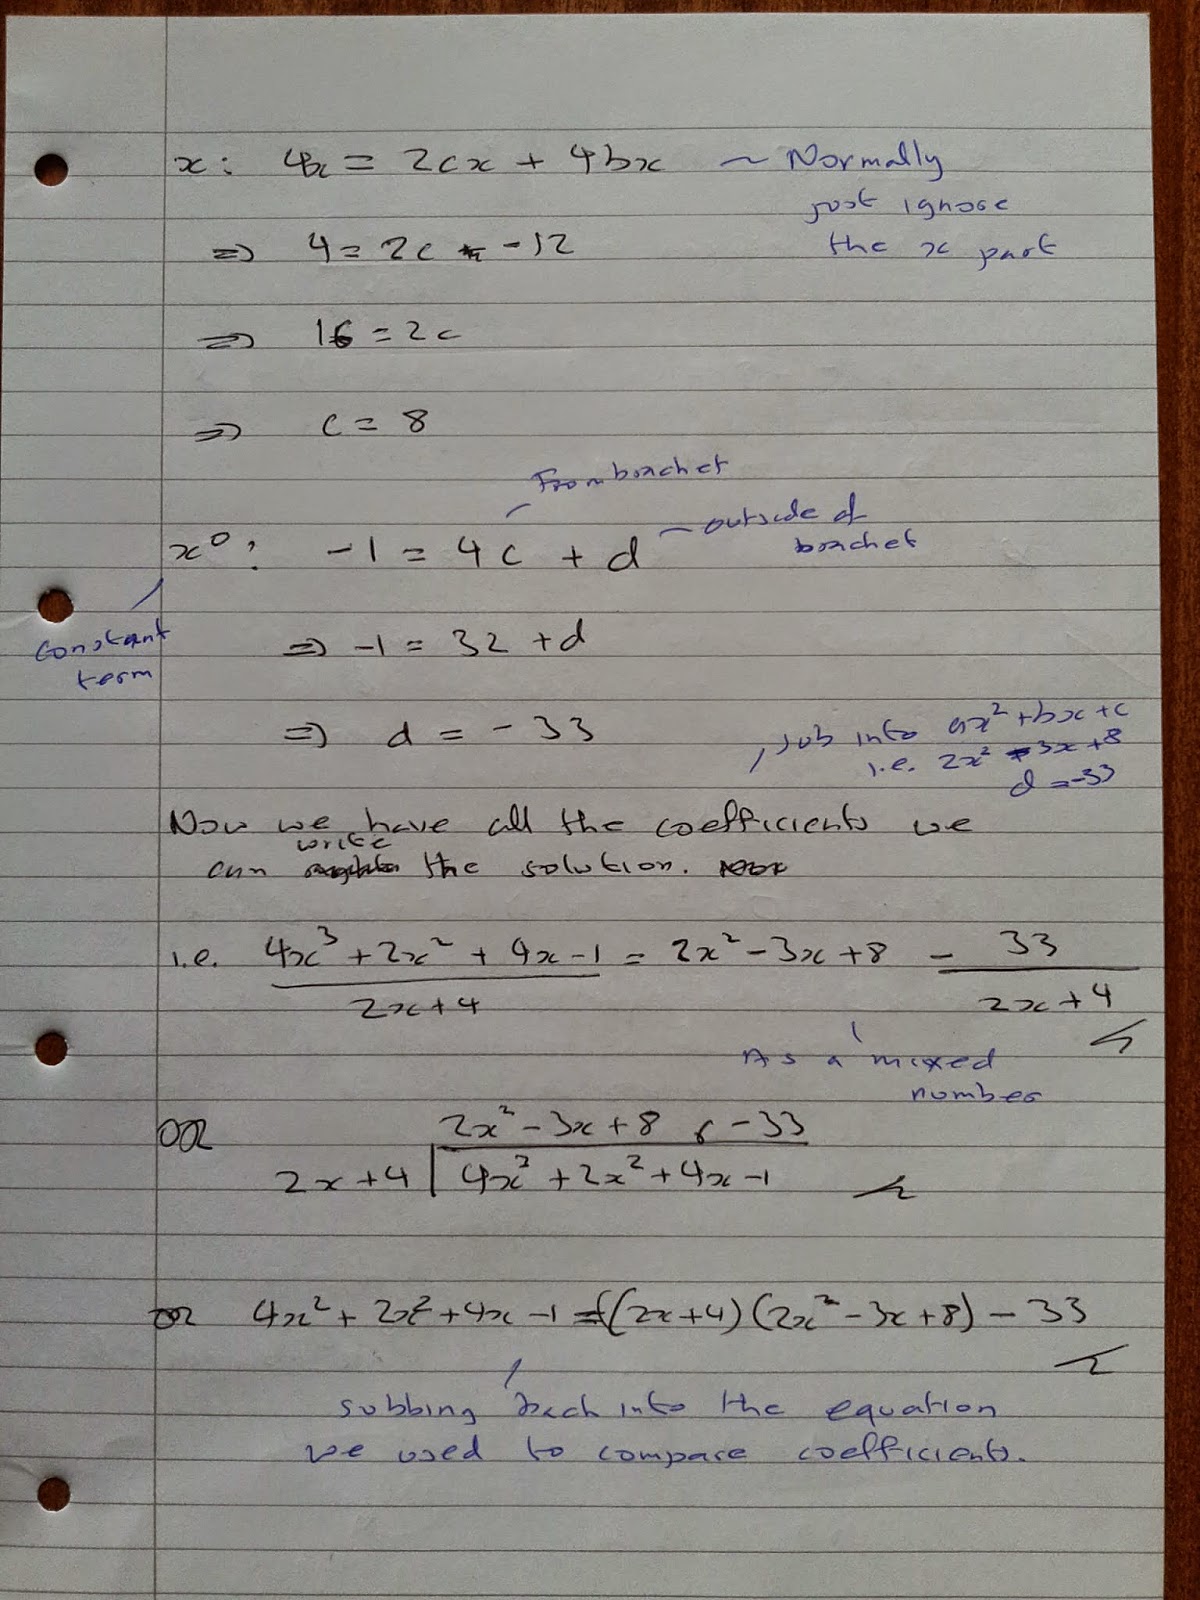 x: 4x = 2cx + 4bx ~ Normally
just ignore
the x part
⇒ 4 = 2c - 12
⇒ 16 = 2c
⇒ c = 8
From bracket
x⁰: -1 = 4c + d ~ outside of
bracket
constant
term
⇒ -1 = 32 + d
⇒ d = -33
sub into ax² + bx + c
i.e. 2x² - 3x + 8
d = -33
Now we have all the coefficients we
can write the solution.
i.e. 4x³ + 2x² + 4x - 1 = 2x² - 3x + 8 - 33
2x + 4 2x + 4
As a mixed
number
OR 2x² - 3x + 8 r -33
2x + 4 | 4x³ + 2x² + 4x - 1
OR 4x² + 2x² + 4x - 1 = (2x + 4)(2x² - 3x + 8) - 33
subbing back into the equation
we used to compare coefficients.